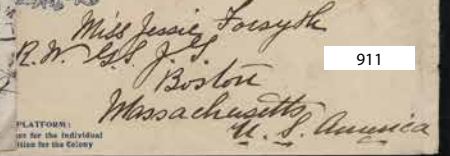 Miss Jessie Forsyth
R. W. G. S. J. T.
911
Boston
Massachusetts
U. S. America
PLATFORM:
for the Individual
ition for the Colony